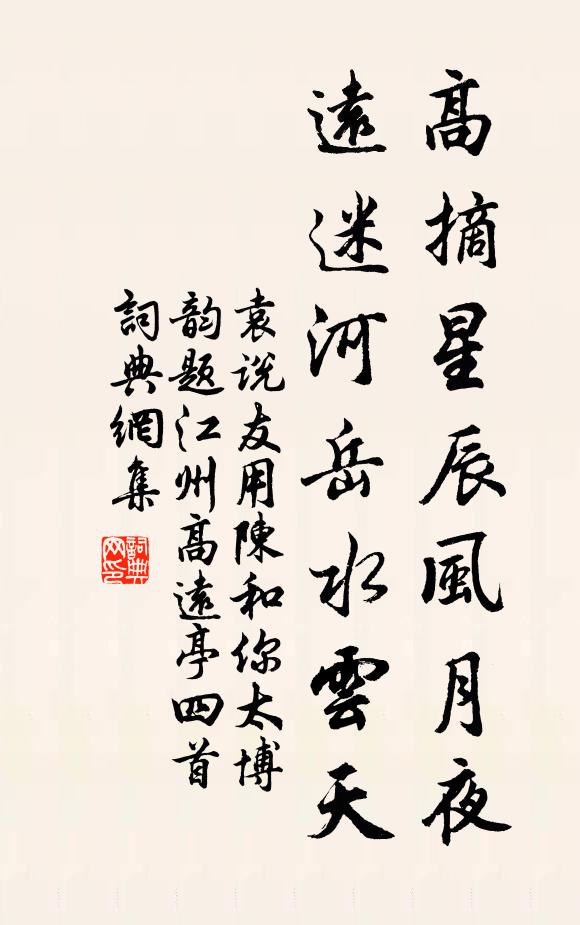 高摘星辰風月夜
遠迷河岳水雲天
袁说友用陳和你太博
韵题江州高遠亭四首
詞典網集
詞典网印